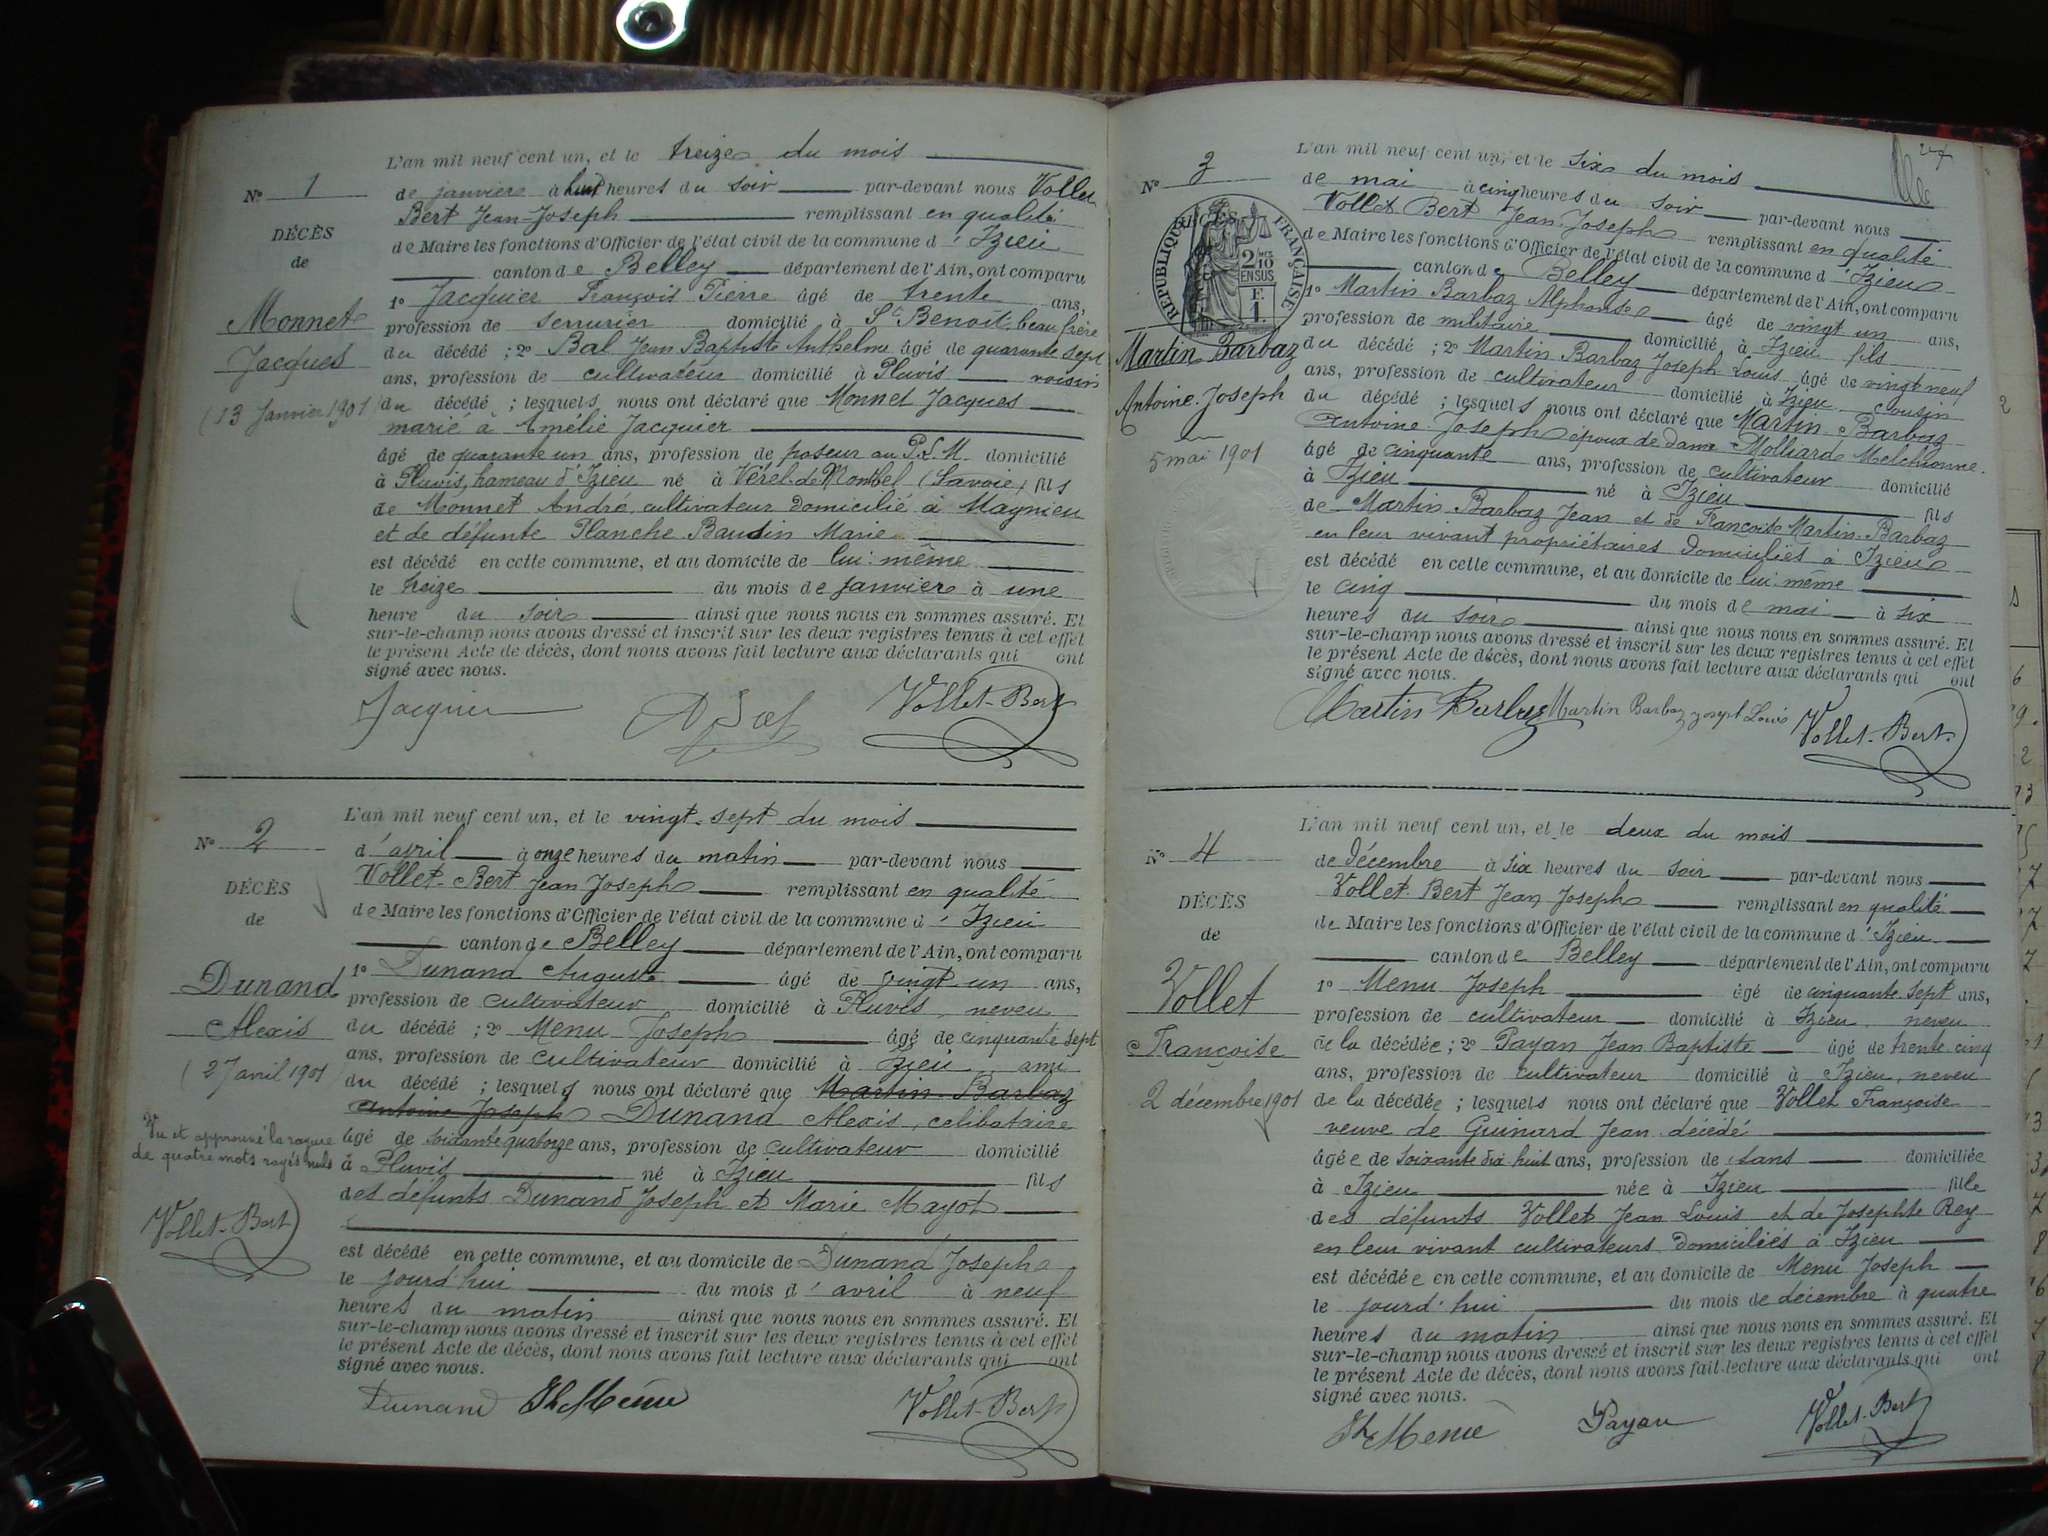 L'an mil neuf cent un, et le treize du mois
N° 1
de janvier à huit heures du soir par-devant nous Vollet
Bert Jean-Joseph remplissant en qualité
DÉCÈS
de Maire les fonctions d'Officier de l'état civil de la commune d'Izieu
de
canton de Belley département de l'Ain, ont comparu
1° Jacquier François Pierre âgé de trente ans,
Monnet
profession de serrurier domicilié à St Benoit, beau frère
Jacques
du décédé ; 2° Bal Jean Baptiste Anthelme âgé de quarante sept
ans, profession de cultivateur domicilié à Pluvis voisin
(13 Janvier 1901)
du décédé ; lesquels nous ont déclaré que Monnet Jacques
marié à Amélie Jacquier
âgé de quarante un ans, profession de poseur au P.L.M. domicilié
à Pluvis, hameau d'Izieu né à Vérel-de-Montbel (Savoie) fils
de Monnet André, cultivateur domicilié à Magnieu
et de défunte Planche Baudin Marie
est décédé en cette commune, et au domicile de lui-même
le treize du mois de janvier à une
heure du soir ainsi que nous nous en sommes assuré. Et
sur-le-champ nous avons dressé et inscrit sur les deux registres tenus à cet effet
le présent Acte de décès, dont nous avons fait lecture aux déclarants qui ont
signé avec nous.
Jacquier Vollet-Bert
L'an mil neuf cent un, et le vingt-sept du mois
N° 2
d'avril à onze heures du matin par-devant nous
Vollet-Bert Jean Joseph remplissant en qualité
DÉCÈS
de Maire les fonctions d'Officier de l'état civil de la commune d'Izieu
de
canton de Belley département de l'Ain, ont comparu
1° Dunand Auguste âgé de vingt un ans,
Dunand
profession de cultivateur domicilié à Pluvis, neveu
Alexis
du décédé ; 2° Menu Joseph âgé de cinquante sept
ans, profession de cultivateur domicilié à Izieu ami
(27 avril 1901)
du décédé ; lesquels nous ont déclaré que Martin-Barbaz
Antoine Joseph Dunand Alexis, célibataire
Vu et approuvé la rayure
de quatre mots rayés nuls
âgé de soixante quatorze ans, profession de cultivateur domicilié
à Pluvis né à Izieu fils
des défunts Dunand Joseph et Marie Mayot
Vollet-Bert
est décédé en cette commune, et au domicile de Dunand Joseph
le jourd'hui du mois d'avril à neuf
heures du matin ainsi que nous nous en sommes assuré. Et
sur-le-champ nous avons dressé et inscrit sur les deux registres tenus à cet effet
le présent Acte de décès, dont nous avons fait lecture aux déclarants qui ont
signé avec nous.
Dunand Jh Menu Vollet-Bert
L'an mil neuf cent un, et le six du mois
N° 3
de mai à cinq heures du soir par-devant nous
Vollet Bert Jean Joseph remplissant en qualité
DÉCÈS
RÉPUBLIQUE FRANÇAISE
2/10 EN SUS
F. 1.
de Maire les fonctions d'Officier de l'état civil de la commune d'Izieu
canton de Belley département de l'Ain, ont comparu
1° Martin Barbaz Alphonse âgé de vingt un ans,
profession de militaire domicilié à Izieu fils
Martin Barbaz
du décédé ; 2° Martin Barbaz Joseph Louis, âgé de vingt neuf
ans, profession de cultivateur domicilié à Izieu cousin
Antoine Joseph
du décédé ; lesquels nous ont déclaré que Martin-Barbaz
Antoine Joseph époux de Dame Molliard Melchionne
5 mai 1901
âgé de cinquante ans, profession de cultivateur domicilié
à Izieu né à Izieu fils
de Martin Barbaz Jean et de Françoise Martin-Barbaz
en leur vivant propriétaires domiciliés à Izieu
est décédé en cette commune, et au domicile de lui-même
le cinq du mois de mai à six
heures du soir ainsi que nous nous en sommes assuré. Et
sur-le-champ nous avons dressé et inscrit sur les deux registres tenus à cet effet
le présent Acte de décès, dont nous avons fait lecture aux déclarants qui ont
signé avec nous.
Martin Barbaz Martin Barbaz Joseph Louis Vollet-Bert
L'an mil neuf cent un, et le deux du mois
N° 4
de Décembre à six heures du soir par-devant nous
Vollet-Bert Jean Joseph remplissant en qualité
DÉCÈS
de Maire les fonctions d'Officier de l'état civil de la commune d'Izieu
de
canton de Belley département de l'Ain, ont comparu
1° Menu Joseph âgé de cinquante-sept ans,
Vollet
profession de cultivateur domicilié à Izieu neveu
Françoise
de la décédée ; 2° Payan Jean Baptiste âgé de trente-cinq
ans, profession de cultivateur domicilié à Izieu, neveu
2 décembre 1901
de la décédée ; lesquels nous ont déclaré que Vollet Françoise
veuve de Guinard Jean décédé
âgée de soixante dix huit ans, profession de sans domiciliée
à Izieu née à Izieu fille
des défunts Vollet Jean Louis et de Josephte Rey
en leur vivant cultivateurs domiciliés à Izieu
est décédée en cette commune, et au domicile de Menu Joseph
le jourd'hui du mois de décembre à quatre
heures du matin ainsi que nous nous en sommes assuré. Et
sur-le-champ nous avons dressé et inscrit sur les deux registres tenus à cet effet
le présent Acte de décès, dont nous avons fait lecture aux déclarants qui ont
signé avec nous.
Jh Menu Payan Vollet-Bert